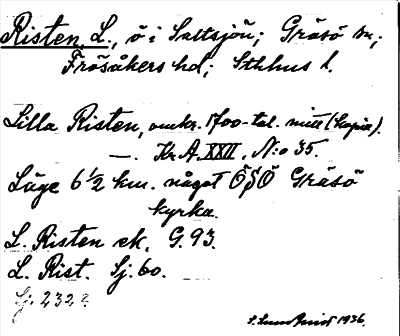 Risten, L., ö i Saltsjön; Gräsö sn;
Frösåkers hd; Sthlms l.
Lilla Risten, omkr. 1700-tal. mitt (kopia).
—. Kr. A. XXII, N:o 35.
Läge 6 1/2 km. något ÖSÖ Gräsö
kyrka.
L. Risten ek. G. 93.
L. Rist. Sj. 60.
Sj. 232 2.
1936.